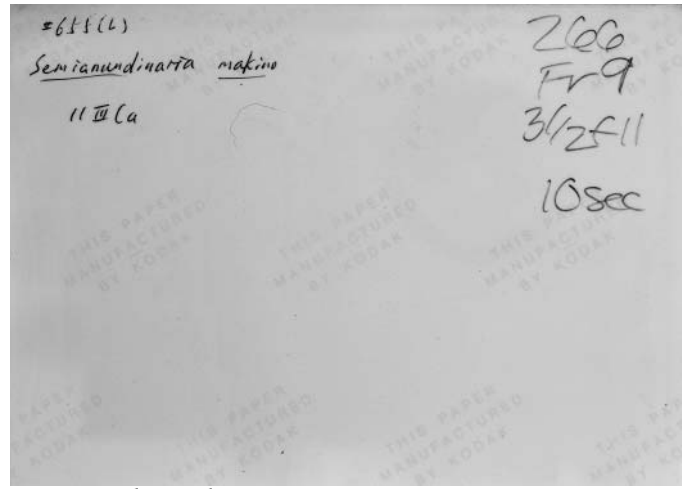 #655(L)
Semiarundinaria makino
11 III Ca
266
Fr 9
3 1/2 f 11
10 sec
THIS PAPER
MANUFACTURED
BY KODAK